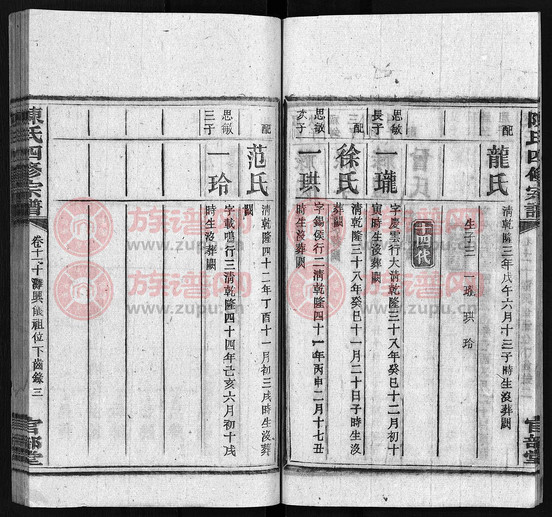 陳氏四修宗譜
官部堂
配
龍氏
清乾隆三年戊午六月十三子時生沒葬闕
生子三 一瓏 珙 玲
十四代
思敏
長子
一瓏
字慶雲行大清乾隆三十八年癸巳十二月初十
寅時生沒葬闕
配
徐氏
清乾隆三十八年癸巳十一月二十日子時生沒
葬闕
思敏
次子
一珙
字錫侯行二清乾隆四十一年丙申二月十七丑
時生沒葬闕
配
范氏
清乾隆四十二年丁酉十一月初三戌時生沒葬
闕
思敏
三子
一玲
字載颺行三清乾隆四十四年己亥六月初十戌
時生沒葬闕
陳氏四修宗譜
位下齒錄 三
官部堂
族谱网
www.zupu.cn
族谱网
www.zupu.cn